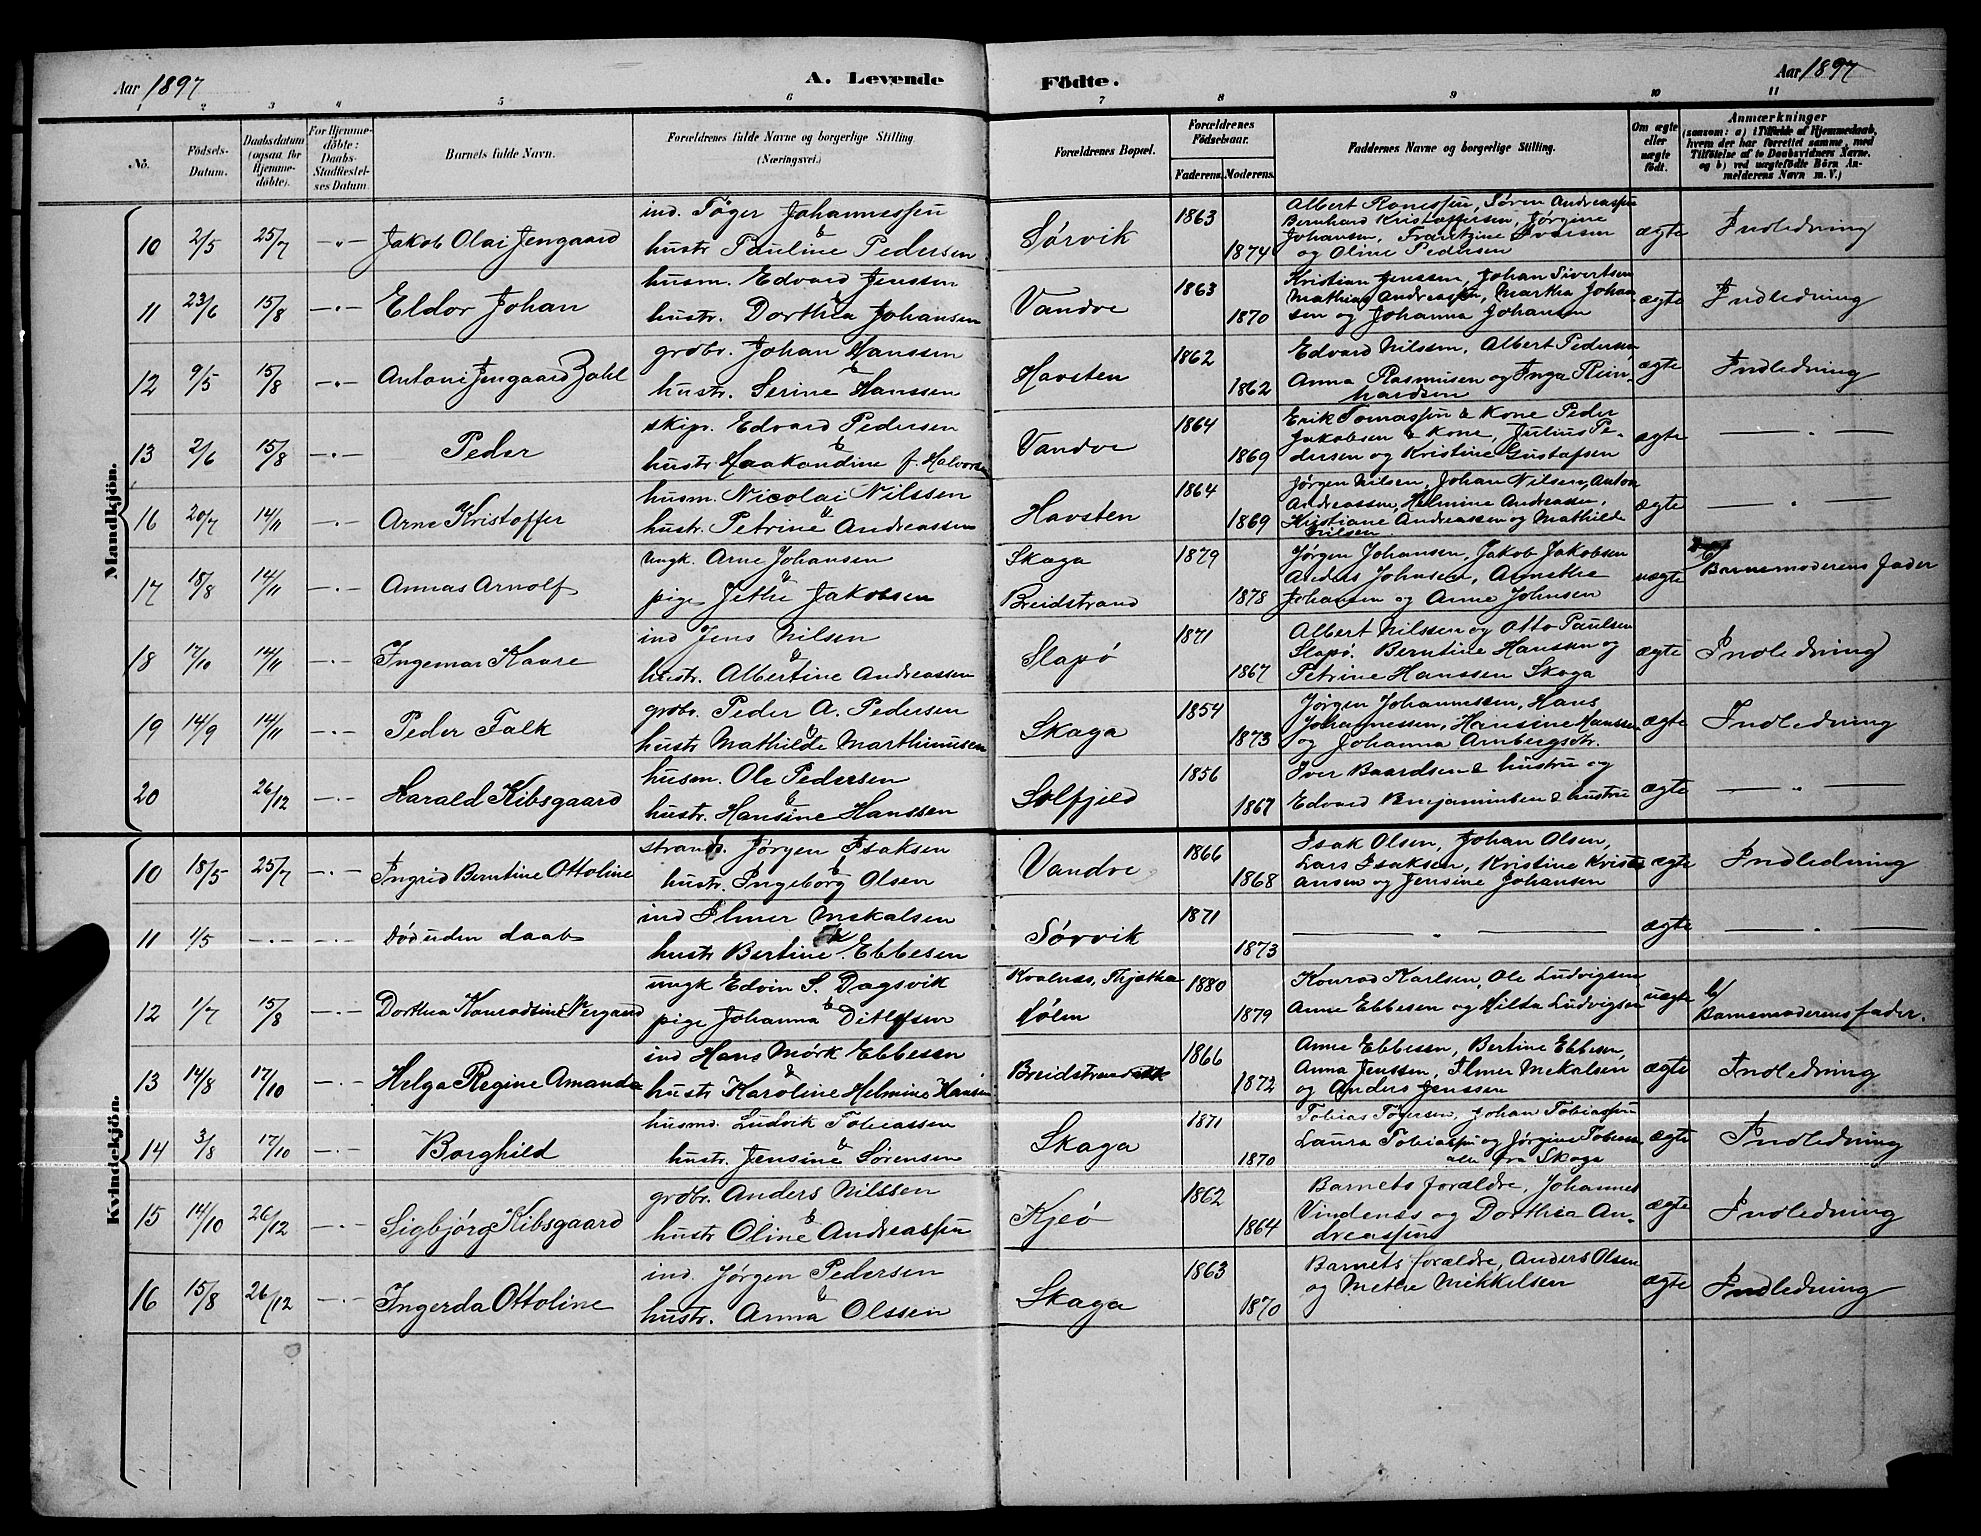 Aar 1897 A. Levende Födte. Aar 1897
1 2 3 4 5 6 7 8 9 10 11
No. Födsels-Datum. Daabsdatum (ogsaa for Hjemmedöbte). For Hjemmedöbte: Daabs-Stadfæstelses Datum. Barnets fulde Navn. Forældrenes fulde Navne og borgerlige Stilling (Næringsvei.) Forældrenes Bopæl. Forældrenes Födselsaar. Faderens. Moderens. Faddernes Navne og borgerlige Stilling. Om ægte eller uægte födt. Anmærkninger (saasom: a) i Tilfælde af Hjemmedaab, hvem der har forrettet samme, med Tilföielse af to Daabsvidners Navne, og b) ved uægtefödte Börn Anmelderens Navn m. V.)
Mandkjön.
10 2/5 25/7 -"- Jakob Olai Jengaard ind. Tøger Johannessen & hustr Pauline Pedersen Sørvik 1863 1874 Albert Ronessen, Søren Andreassen Bernhard Kristoffersen, Jørgine Johansen, Frantzine Ivarsen og Oline Pedersen ægte Indledning
11 23/6 15/8 -"- Eldor Johan husm. Edvard Jenssen & hustr. Dorthea Johansen Vandve 1863 1870 Kristian Jenssen, Johan Sivertsen Mathias Andreassen, Martha Johansen og Johanna Johansen ægte Indledning
12 9/5 15/8 -"- Antoni Jengaard Zahl grdbr. Johan Hanssen & hustr. Serine Hanssen Havsten 1862 1862 Edvard Nilssen, Albert Pedersen, Anna Rasmusen og Inga Reinhardsen ægte Indledning
13 2/6 15/8 -"- Peder skip. Edvard Pedersen & hustr. Haakondine f. Halvorsen Vandve 1864 1869 Erik Tomassen & Kone Peder Jakobsen & Kone, Julius Pedersen og Kristine Gustafsen ægte — " —
16 20/7 14/11 -"- Arne Kristoffer husm. Nicolai Nilssen & hustr. Petrine Andreassen Havsten 1864 1869 Jørgen Nilsen, Johan Nilsen, Anton Andreassen, Helmine Andreassen, Kristiane Andreassen og Mathilde Nilsen ægte — " —
17 18/8 14/11 -"- Annas Arnolf Ungk. Arne Johansen & pige Jethe Jakobsen Skaga Breidstrand 1879 1878 Jørgen Johansen, Jakob Jakobsen Anders Johnsen, Annethe Johansen og Anne Johnsen uægte b/ Barnemoderens fader
18 17/10 14/11 -"- Ingemar Kaare ind Jens Nilsen & hustr. Albertine Andreassen Slapø 1871 1867 Albert Nilssen og Otto Paulsen Slapø. Berntine Hanssen og Petrine Hanssen Skaga ægte Indledning
19 14/9 14/11 -"- Peder Falk grdbr. Peder A. Pedersen & hustr Mathilde Marthinusen Skaga 1854 1873 Jørgen Johannessen, Hans Johannessen, Hansine Hanssen og Johanna Arnbergsdtr. ægte Indledning
20 26/12 -"- Harald Kibsgaard husm. Ole Pedersen & hustr. Hansine Hanssen Solfjeld 1856 1867 Iver Baardsen & hustru og Edvard Benjaminsen & hustru ægte — " —
Kvindekjön.
10 18/5 25/7 -"- Ingrid Berntine Ottoline strands. Jørgen Isaksen & hustr. Ingeborg Olsen Vandve 1866 1868 Isak Olsen, Johan Olsen, Lars Isaksen, Kristine Kristiansen og Jensine Johansen ægte Indledning
11 1/5 -"- -"- Død uden daab ind Ilmer Mekalsen & hustr Bertine Ebbesen Sørvik 1871 1873 — " — ægte — " —
12 1/7 15/8 -"- Dorthea Konradine Nergaard ungk Edvin S. Dagsvik & pige Johanna Ditlefsen Kvalnæs, Thjøtta Hølen 1880 1879 Konrad Karlsen, Ole Ludvigsen Anne Ebbesen og Hilda Ludvigsen uægte b/ Barnemoderens fader.
13 14/8 17/10 -"- Helga Regine Amanda ind Hans Mørk Ebbesen & hustr Karoline Helmine Hansen Breidstrand 1866 1872 Anne Ebbesen, Bertine Ebbesen, Anna Jenssen, Ilmer Mekalsen og Anders Jenssen ægte Indledning
14 3/8 17/10 -"- Borghild husmd. Ludvik Tobiassen & hustr. Jensine Sørensen Skaga 1871 1870 Tobias Tøgersen, Johan Tobiassen Laura Tobiassen og Jørgine Tobiassen alle fra Skaga ægte Indledning
15 14/10 26/12 -"- Sigbjørg Kibsgaard grdbr. Anders Nilssen & hustr Oline Andreassen Kjeø 1862 1864 Barnets forældre, Johannes Vindenæs og Dorthea Andreassen ægte Indledning
16 15/8 26/12 -"- Ingerda Ottoline ind. Jørgen Pedersen & hustr. Anna Olssen Skaga 1863 1870 Barnets forældre, Anders Olsen og Methe Mikkelsen ægte Indledning